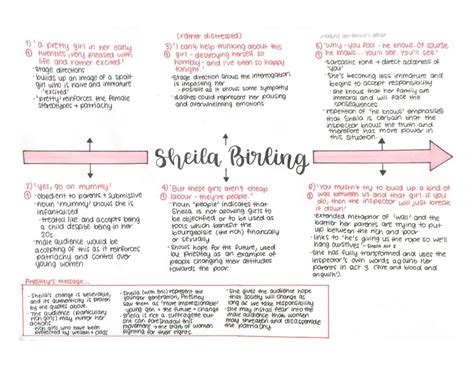 1) 'a pretty girl in her early
twenties, very pleased with
life and rather excited'
- stage directions
- builds up an image of a spoilt
girl who is naive and immature
'excited'
- 'pretty' reinforces the female
stereotypes + patriarchy
(rather distressed)
3) 'I can't help thinking about this
girl - destroyed herself so
horribly - and I've been so happy
tonight.'
- stage direction shows the interrogation
is impacting
positive as it shows some sympathy
- dashes could represent her pausing
and overwhelming emotions
5) 'Why - you fool - he knows. Of course
he knows... You'll see. You'll see.'
- sarcastic tone + direct address of
'you'
- She's becoming less immature and
begins to accept responsibility
- she knows that her family are
immoral and will face the
consequences.
- repetition of 'he knows' emphasises
that Sheila is certain that the
inspector knows the truth and
therefore has more power in
this situation.
Sheila Birling
2) 'yes, go on mummy'
- obedient to parents + submissive
- noun 'mummy' shows she is
infantalised
- treated like and accepts
being a child despite being in her
20s
- male audience would be
accepting of this as it reinforces
patriarchy and control over
young women.
4) 'But these girls aren't cheap
labour - they're people.'
- noun 'people' indicates that
Sheila is not allowing girls to
be objectified or to be used as
tools which benefit the
bourgeoisie (rich) financially
or sexually
- shows hope for the future, used
by Priestley as an example of
people changing their attitudes
towards the poor
6) 'You mustn't try to build up a kind of
wall between us and that girl. If you
do, then the inspector will just break
it down'
- extended metaphor of 'wall' and the
barrier her parents are trying to put
up between the rich and the poor.
- links to 'he's giving us the rope so we'll
hang ourselves' - Sheila Act 2
- She has fully transformed and uses the
inspector's own words again her
parents in act 3 (fire and blood and
anguish).
Priestley's message...
- Sheila's change is believable,
and its authenticity is proven
by the quotes above.
- The audience (particularly
rich girls) may mirror her
actions
- rich girls who have been
protected by wealth + class
- Sheila (with Eric) represent the
younger generation, Priestley
saw them as 'more impressionable'
- young gen = the future + change
- Sheila is not a suffragette but she
can foreshadow this
movement + the start of women
fighting for their rights.
- She gives the audience hope
that society will change as
long as we take responsibility
- She may instil fear into the
male audience that women
may threaten and disassemble
the patriarchy